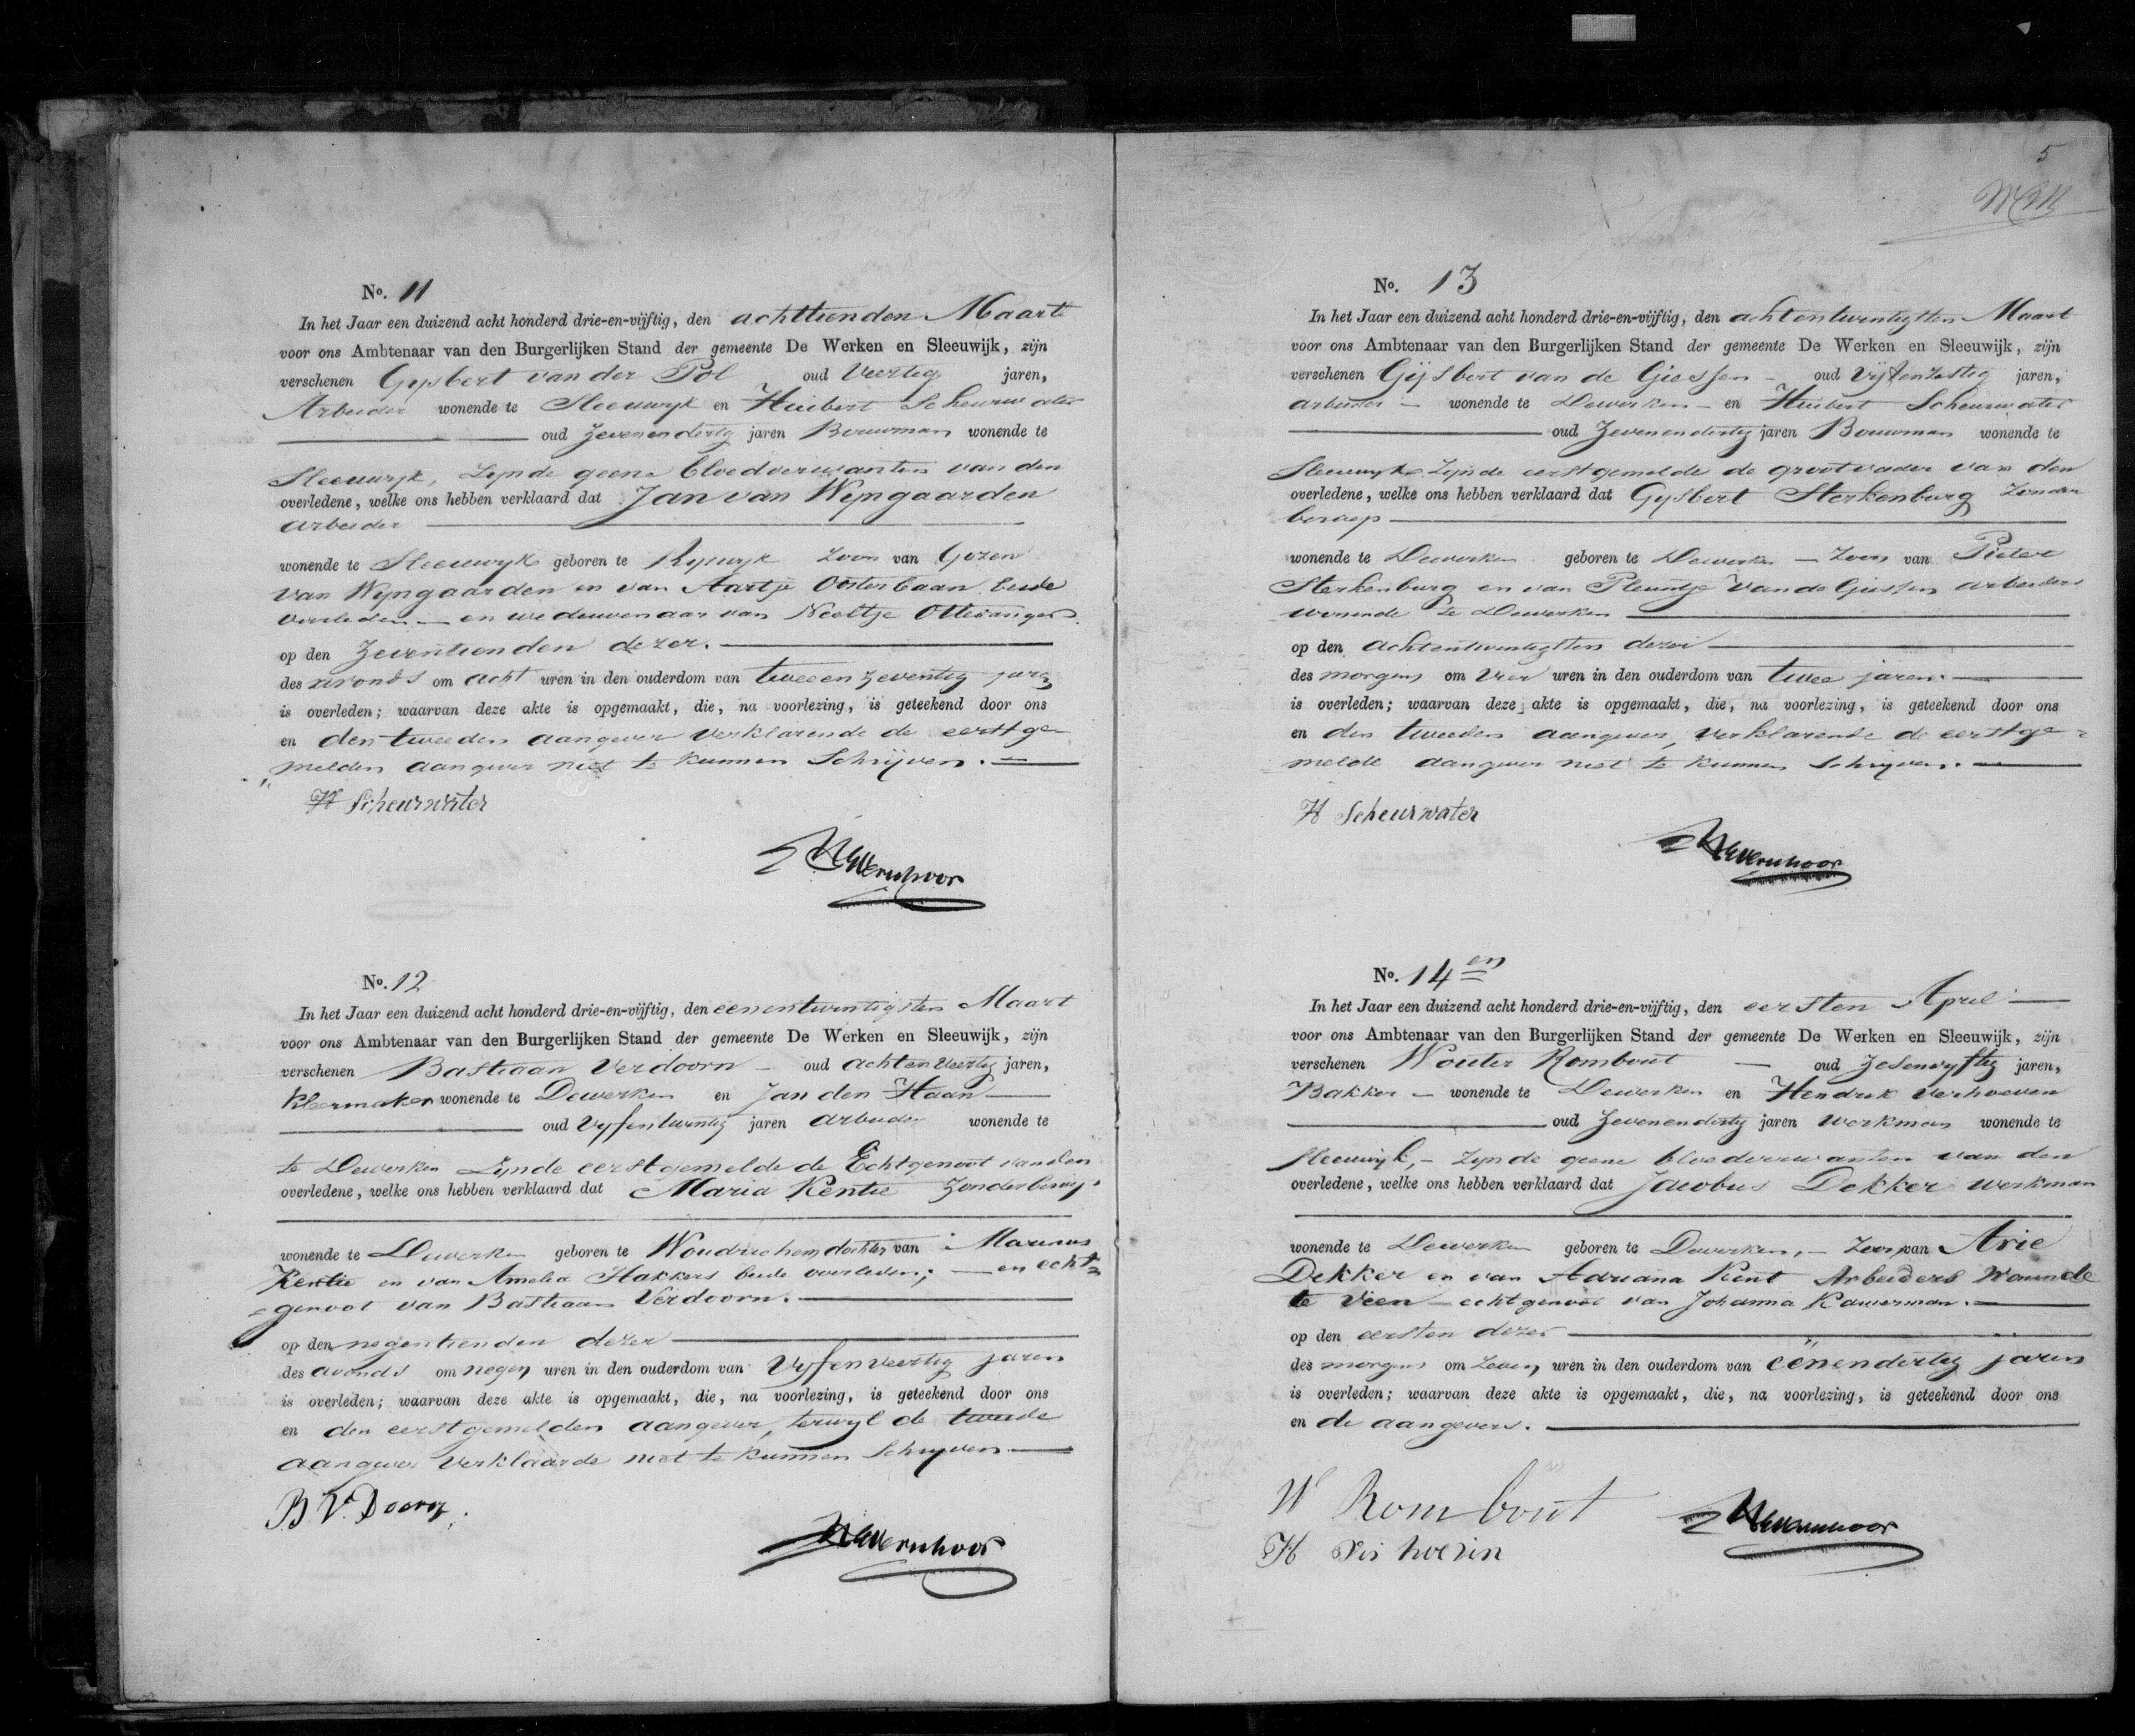 No. 11
In het Jaar een duizend acht honderd drie-en-vijftig, den achttienden Maart
voor ons Ambtenaar van den Burgerlijken Stand der gemeente De Werken en Sleeuwijk, zijn
verschenen Gysbert van der Pol oud Veertig jaren,
Arbeider wonende te Sleeuwyk en Huibert Scheurwater
oud Zevenendertig jaren Bouwman wonende te
Sleeuwyk, Zynde geene bloedverwanten van den
overledene, welke ons hebben verklaard dat Jan van Wyngaarden
Arbeider
wonende te Sleeuwyk geboren te Ryswyk Zoon van Gozen
van Wyngaarden en van Aartje Oosterbaan beide
overleden en weduwenaar van Neeltje Ottevanger
op den Zeventienden dezer.
des avonds om acht uren in den ouderdom van tweeenzeventig jaren
is overleden; waarvan deze akte is opgemaakt, die, na voorlezing, is geteekend door ons
en den tweeden aangever Verklarende de eerstge-
melden aangever niet te kunnen Schrijven.
H Scheurwater
No. 12
In het Jaar een duizend acht honderd drie-en-vijftig, den eenentwintigsten Maart
voor ons Ambtenaar van den Burgerlijken Stand der gemeente De Werken en Sleeuwijk, zijn
verschenen Bastiaan Verdoorn oud achtenVeertig jaren,
Kleermaker wonende te Dewerken en Jan den Haan
oud Vyfentwintig jaren arbeider wonende te
te Dewerken Zynde eerstgemelde de Echtgenoot van den
overledene, welke ons hebben verklaard dat Maria Kentie Zonder beroep
wonende te Dewerken geboren te Woudrichem dochter van Marinus
Kentie en van Amelia Hakkers beide overleden; en echt=
genoot van Bastiaan Verdoorn.
op den negentienden dezer
des avonds om negen uren in den ouderdom van Vyfenveertig jaren
is overleden; waarvan deze akte is opgemaakt, die, na voorlezing, is geteekend door ons
en den eerstgemelden aangever, terwyl de tweede
aangever Verklaarde niet te kunnen Schryven
B V. Doorn
5
No. 13
In het Jaar een duizend acht honderd drie-en-vijftig, den achtentwintigsten Maart
voor ons Ambtenaar van den Burgerlijken Stand der gemeente De Werken en Sleeuwijk, zijn
verschenen Gijsbert van de Giessen oud Vijfenzestig jaren,
arbeider wonende te Dewerken en Huibert Scheurwater
oud Zevenendertig jaren Bouwman wonende te
Sleeuwyk Zynde eerstgemelde de grootvader van den
overledene, welke ons hebben verklaard dat Gysbert Sterkenburg Zonder
beroep
wonende te Dewerken geboren te Dewerken Zoon van Pieter
Sterkenburg en van Pleuntje Van de Giessen arbeiders
wonende te Dewerken
op den achtentwintigsten dezer
des morgens om Vier uren in den ouderdom van twee jaren.
is overleden; waarvan deze akte is opgemaakt, die, na voorlezing, is geteekend door ons
en den tweeden aangever, Verklarende de eerstge=
melde aangever niet te kunnen Schryven.
H Scheurwater
No. 14en
In het Jaar een duizend acht honderd drie-en-vijftig, den eersten April
voor ons Ambtenaar van den Burgerlijken Stand der gemeente De Werken en Sleeuwijk, zijn
verschenen Wouter Rombout oud Zesenvyftig jaren,
Bakker wonende te Dewerken en Hendrik Verhoeven
oud Zevenendertig jaren Werkman wonende te
Sleeuwyk, Zynde geene bloedverwanten van den
overledene, welke ons hebben verklaard dat Jacobus Dekker Werkman
wonende te Dewerken geboren te Dewerken, Zoon van Arie
Dekker en van Adriana Kent Arbeiders Wonende
te Veen echtgenoot van Johanna Kamerman.
op den eersten dezer
des morgens om Zeven uren in den ouderdom van eënendertig jaren
is overleden; waarvan deze akte is opgemaakt, die, na voorlezing, is geteekend door ons
en de aangevers.
W Rombout
H Verhoeven